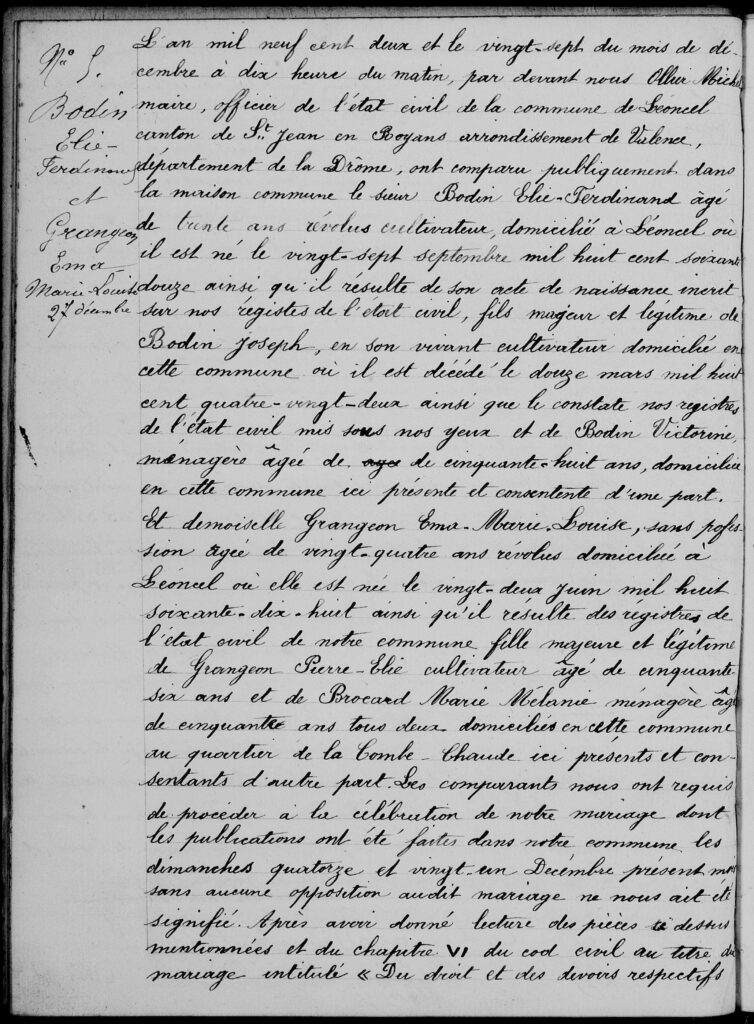 N° 5.
Bodin
Elie-
Ferdinand
et
Grangeon
Ema
Marie-Louise
27 décembre
L'an mil neuf cent deux et le vingt-sept du mois de dé-
cembre à dix heure du matin, par devant nous Ollier Michel
maire, officier de l'état civil de la commune de Léoncel
canton de St Jean en Royans arrondissement de Valence,
département de la Drôme, ont comparu publiquement dans
la maison commune le sieur Bodin Elie-Ferdinand âgé
de trente ans révolus cultivateur, domicilié à Léoncel où
il est né le vingt-sept septembre mil huit cent soixante
douze ainsi qu'il résulte de son acte de naissance incrit
sur nos régistes de l'état civil, fils majeur et légitime de
Bodin Joseph, en son vivant cultivateur domicilié en
cette commune où il est décédé le douze mars mil huit
cent quatre-vingt-deux ainsi que le constate nos registres
de l'état civil mis sous nos yeux et de Bodin Victorine,
ménagère âgée de agée de cinquante-huit ans, domiciliée
en cette commune ici présente et consentente d'une part.
Et demoiselle Grangeon Ema-Marie-Louise, sans pofes-
sion agée de vingt-quatre ans révolus domiciliée à
Léoncel où elle est née le vingt-deux Juin mil huit
soixante-dix-huit ainsi qu'il résulte des régistres de
l'état civil de notre commune fille majeure et légitime
de Grangeon Pierre-Elie cultivateur âgé de cinquante-
six ans et de Brocard Marie Mélanie ménagère âgé
de cinquante ans tous deux domiciliés en cette commune
au quartier de la Combe-Chaude ici présents et con-
sentants d'autre part. Les comparrants nous ont requis
de procéder à la célébration de notre mariage dont
les publications ont été faites dans notre commune les
dimanches quatorze et vingt-un Décembre présent mois
sans aucune opposition audit mariage ne nous ait été
signifié. Après avoir donné lecture des pièces ci dessus
mentionnées et du chapitre VI du cod civil au titre du
mariage intitulé « Du droit et des devoirs respectifs